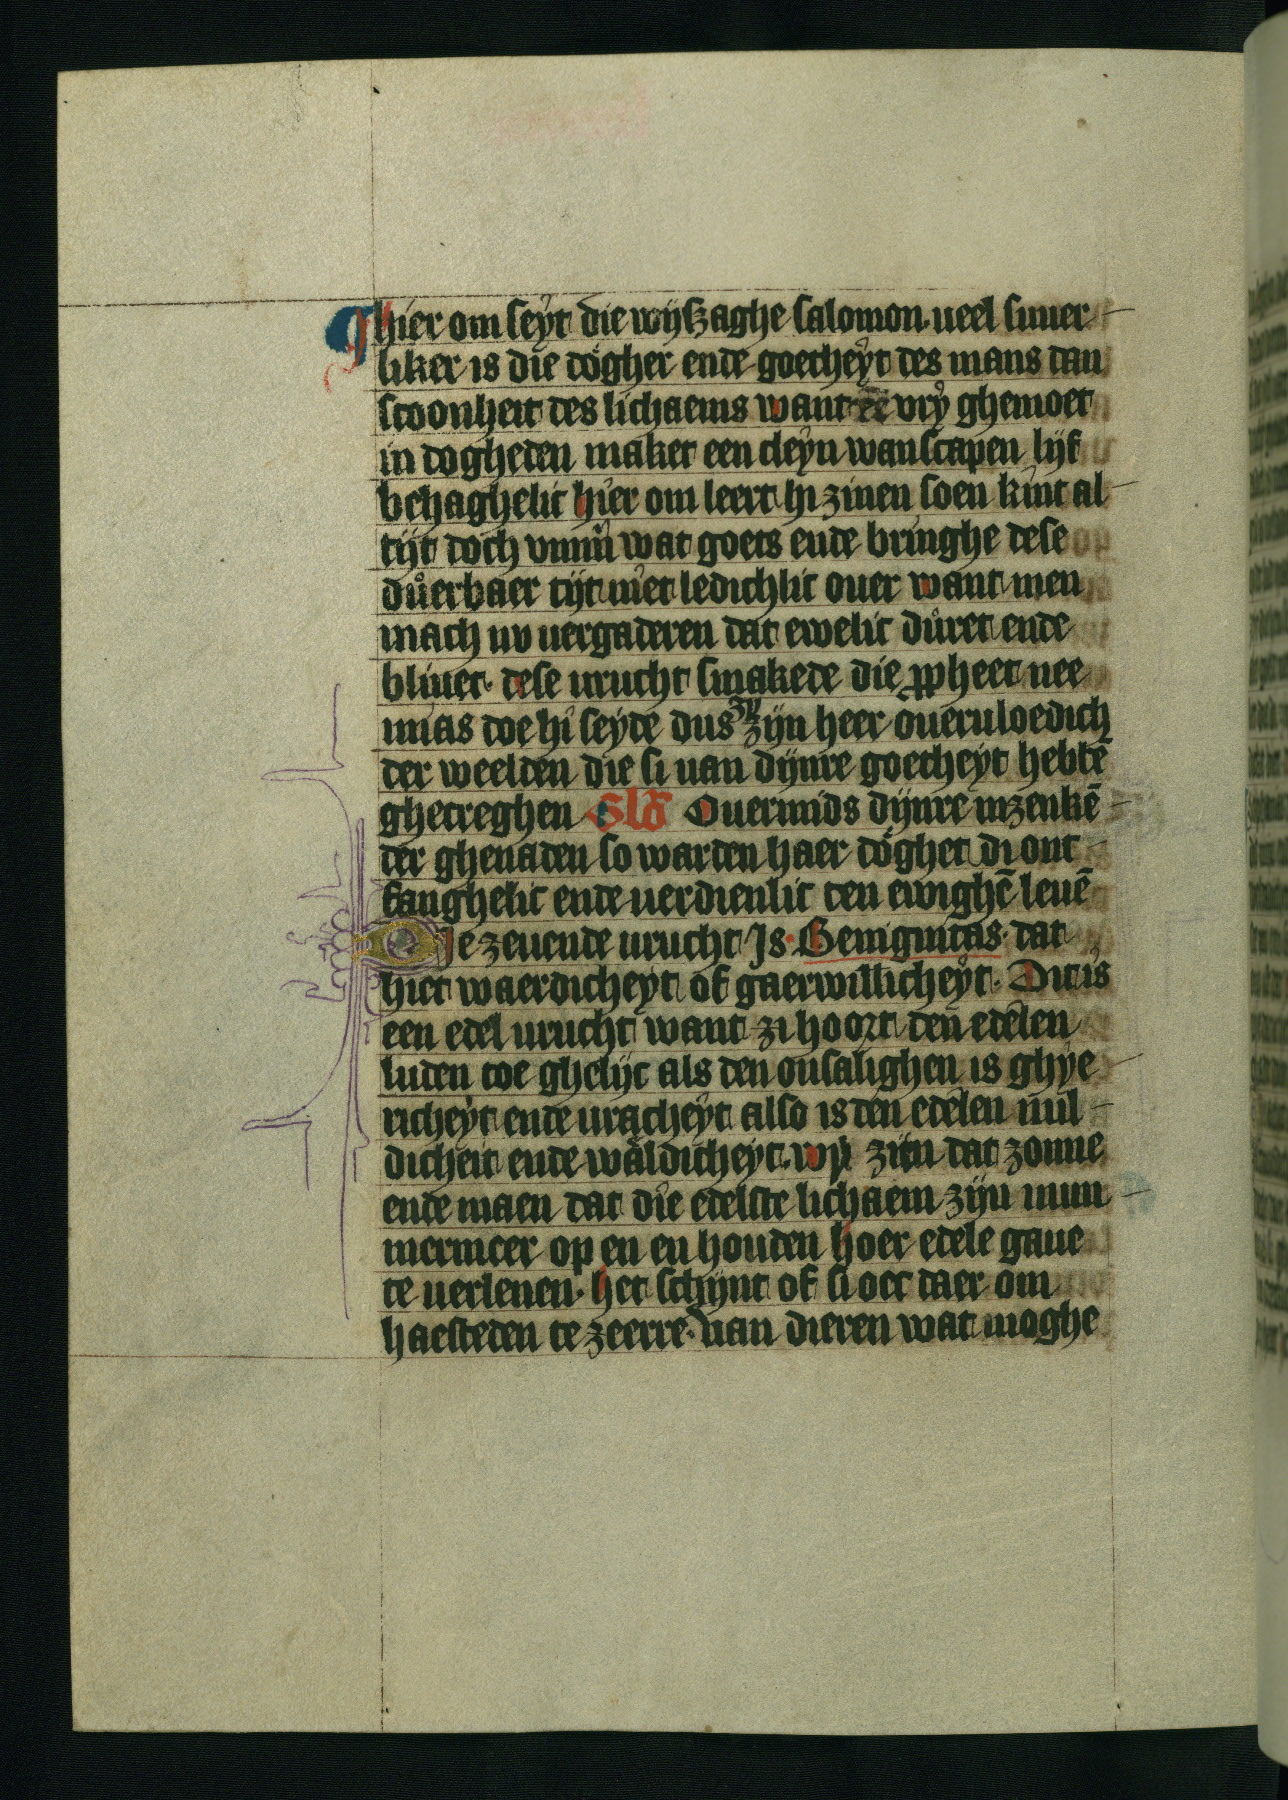 hier om seyt die wijszaghe salomon. ueel suuer
liker is die dogher ende goetheyt des mans dan
scoonheit des lichaems want ee vry ghemoet
in dogheden maket een cleyn wanscapen lijf
behaghelic hier om leert hi zinen soen kint al
tijt doch ummer wat goets ende bringhe dese
duerbaer tijt niet ledichlic ouer want men
mach nv uergaderen dat ewelic duret ende
bliuet. dese urucht smakede die ppheet nee
mias doe hi seyde dus zy zijn heer oueruloedich
der weelden die si uan dijnre goetheyt hebbē
ghecreghen Glo Ouermids dijnre inzenkē
der ghenaden so warden haer dogher di ont
fanghelic ende uerdienlic den ewighē leuē
Die zeuende urucht Is. Benignitas. dat
hiet waerdicheyt of gaerwillicheyt. Dit is
een edel urucht want zi hoort den edelen
luden toe ghelijc als den onsalighen is ghye
richeyt ende uracheyt also is den edelen mil
dicheit ende waldicheyt. wy zien dat zonne
ende maen dat die edelste lichaem zijn nim
mermeer op en en houden hoer edele gaue
te uerlenen. het schijnt of si oec daer om
haesteden te zeerre. uan dieren wat moghe